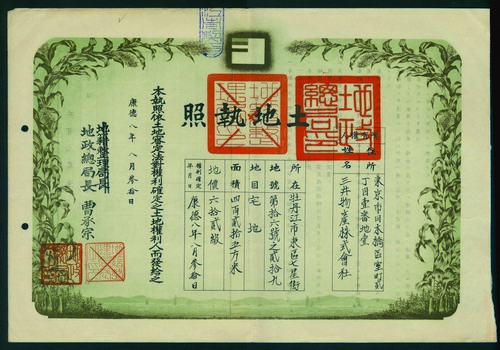 土地執照
權利人
住所 東京市日本橋區室町貳丁目壹番地壹
姓名 三井物產株式會社
所在 牡丹江市東區七星街
地號 第拾六號之貳拾九
地目 宅地
面積 四百貳拾五方米
地價 六拾貳級
權利確定年月日 康德八年八月參拾日
本執照依土地審定法對權利確定之土地權利人而發給之
康德八年八月參拾日
地籍整理局長
地政總局長 曹承宗